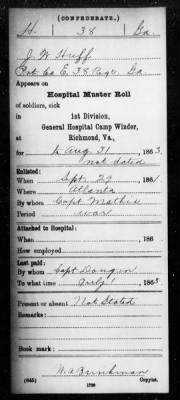 (CONFEDERATE.)
H 38 Ga.
J W Huff
Co. E, 38 Regt. Ga
Appears on
Hospital Muster Roll
of soldiers, sick in
1st Division,
General Hospital Camp Winder,
Richmond, Va.,
for to Aug 31, 1863.
not dated
Enlisted:
When Sept 29, 1861
Where Atlanta
By whom Capt Mathis
Period war
Attached to Hospital:
When , 186
How employed
Last paid:
By whom Capt
To what time July 1, 1863
Present or absent Not Stated
Remarks:
Book mark:
W. A. Brinkman
(645) Copyist.